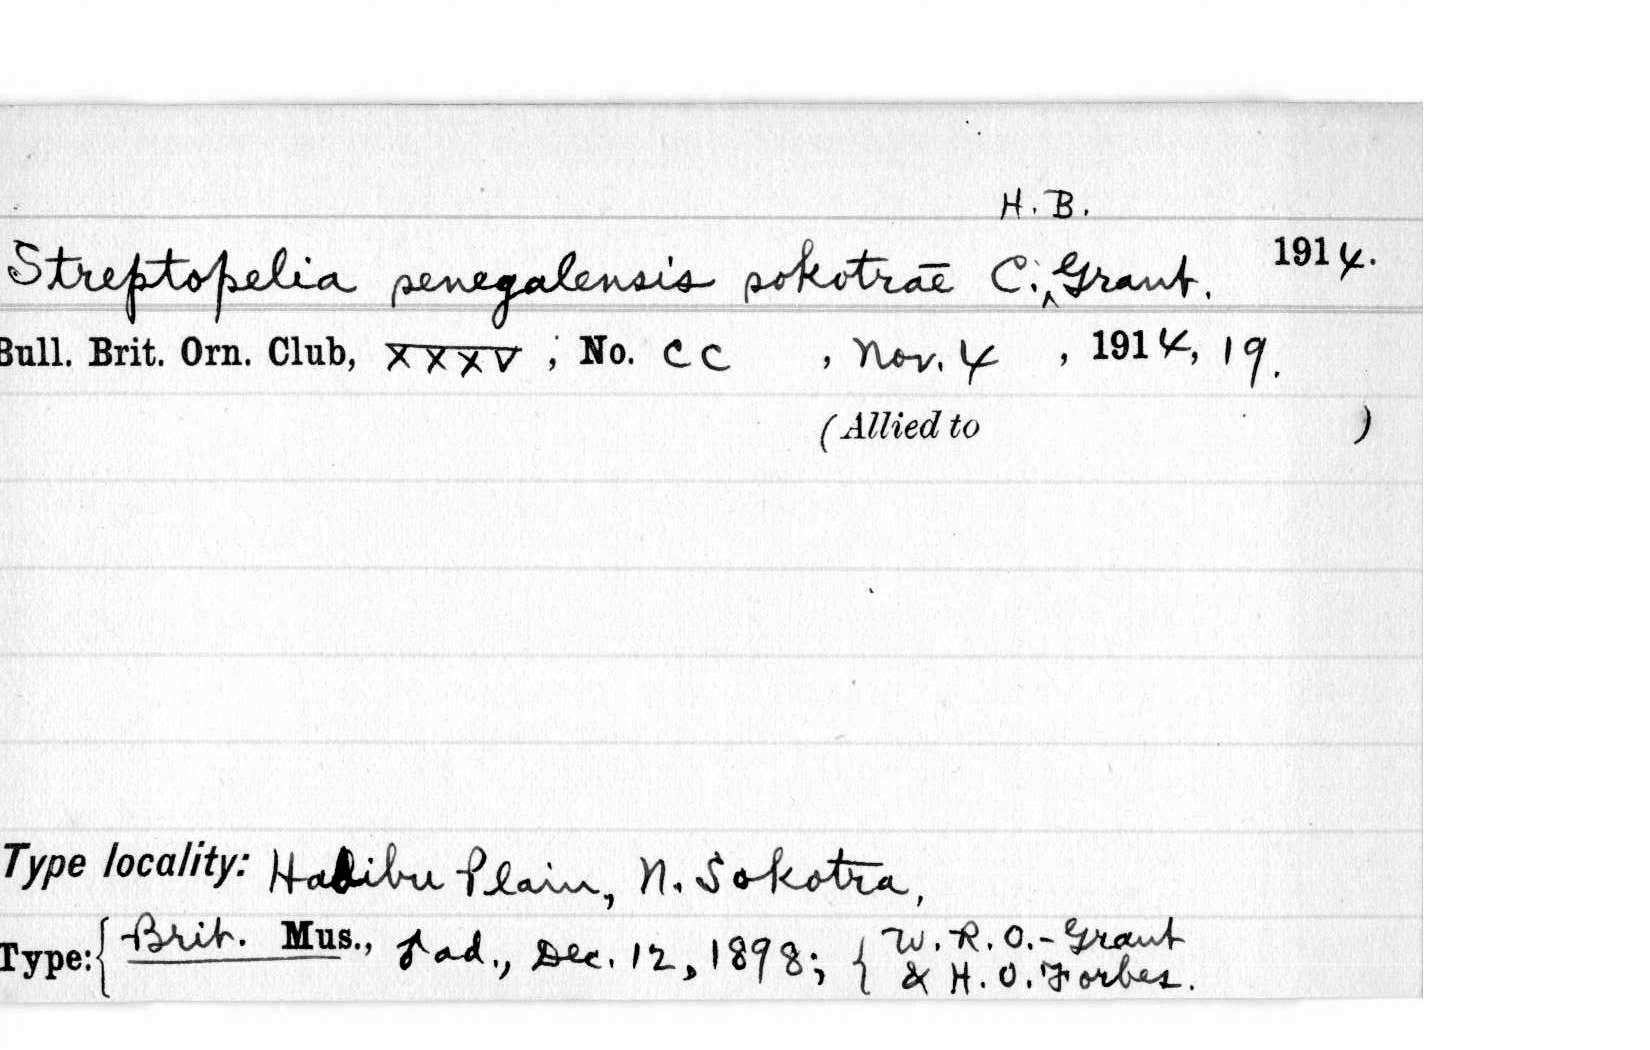 H. B.
Streptopelia senegalensis sokotrae C. ‸ Grant. 1914.
Bull. Brit. Orn. Club, XXXV ; No. CC , Nov. 4 , 1914, 19.
(Allied to )
Type locality: Hadibu Plain, N. Sokotra,
Type: { Brit. Mus., ♂ ad., Dec. 12, 1898; { W. R. O.-Grant
& H. O. Forbes.